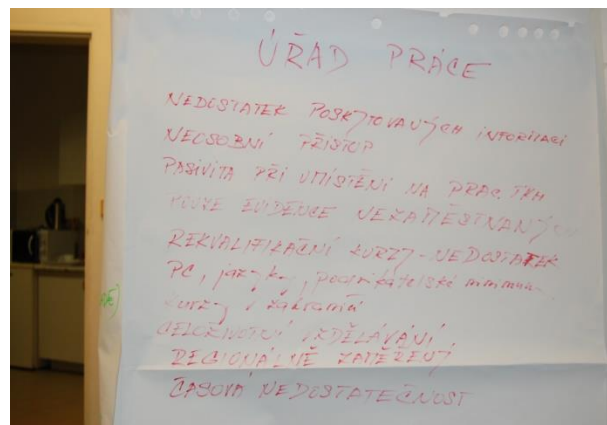 ÚŘAD PRÁCE
NEDOSTATEK POSKYTOVANÝCH INFORMACÍ
NEOSOBNÍ PŘÍSTUP
PASIVITA PŘI UMÍSTĚNÍ NA PRAC. TRH
POUZE EVIDENCE NEZAMĚSTNANÝCH
REKVALIFIKAČNÍ KURZY - NEDOSTATEK
PC, jazyky, podnikatelské minimum
kurzy v zahraničí
CELOŽIVOTNÍ VZDĚLÁVÁNÍ
REGIONÁLNĚ ZAMĚŘENÝ
ČASOVÁ NEDOSTATEČNOST